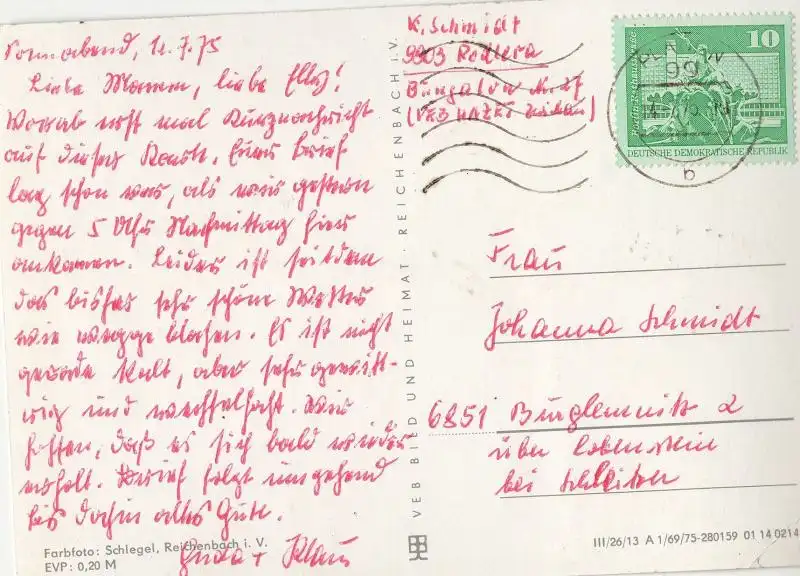 Sonnabend, 12.7.75
Liebe Mamm, liebe Elly!
Vorab erst mal Kurznachricht
auf dieser Karte. Euer Brief
lag schon vor, als wir gestern
gegen 5 Uhr Nachmittag hier
ankamen. Leider ist seitdem
das bisher sehr schöne Wetter
wie wegge blasen. Es ist nicht
gerade kalt, aber sehr gewitt-
rig und wechselhaft. Wir
hoffen, daß es sich bald wieder
erholt. Brief folgt umgehend
bis dahin alles Gute.
+ Klaus
Farbfoto: Schlegel, Reichenbach i. V.
EVP: 0,20 M
VEB BILD UND HEIMAT · REICHENBACH i. V.
K. Schmidt
9903
Bungalow Nr. 27
10
DEUTSCHE DEMOKRATISCHE REPUBLIK
99
b
Frau
Johanna Schmidt
6851 Burglemnitz 2
über Lobenstein
bei Schleiz
III/26/13 A 1/69/75-280159 01 14 0214